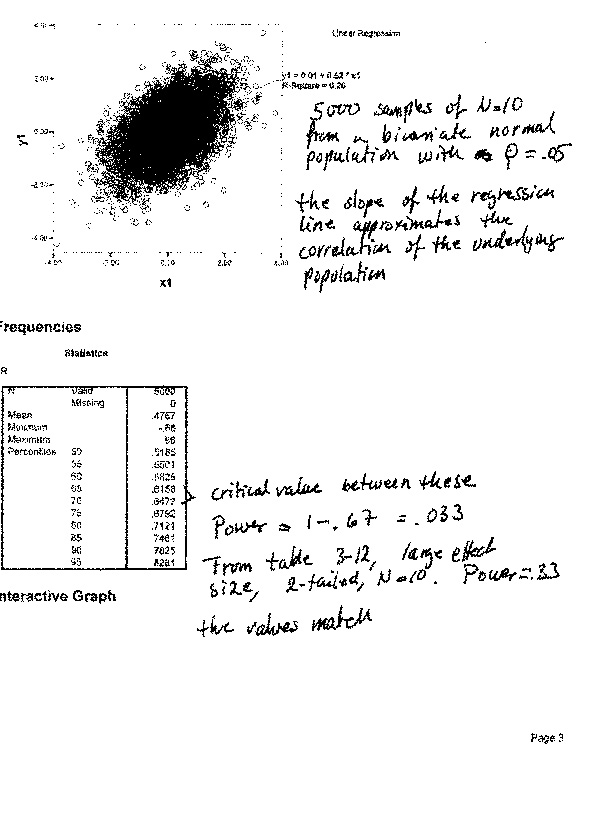 Linear Regression
4.00
2.00
0.00
-2.00
-4.00
y1
-4.00 -2.00 0.00 2.00 4.00
x1
R-Square = 0.26
5000 samples of N=10
from a bivariate normal
population with ρ = .05
the slope of the regression
line approximates the
correlation of the underlying
population
Frequencies
Statistics
R
N Valid 5000
Missing 0
Mean .4767
Minimum
Maximum
Percentiles 50 .5185
55
60
65 .6158
70 .6472
75 .6792
80 .7121
85 .7461
90 .7825
95 .8281
critical value between these
Power = 1-.67 = .033
From table 3-12, large effect
size, 2-tailed, N=10. Power=.33
the values match
Interactive Graph
Page 3